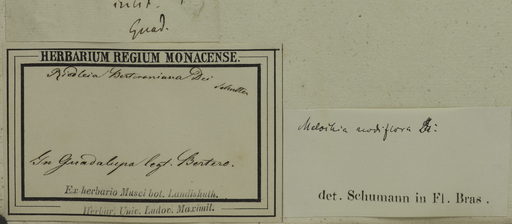 Guad.
HERBARIUM REGIUM MONACENSE.
Riedleia Berteroana
In Guadalupa legt. Bertero.
Ex herbario Musei bot. Landishuth.
Herbar. Univ. Ludov. Maximil.
Melochia nodiflora
det. Schumann in Fl. Bras.